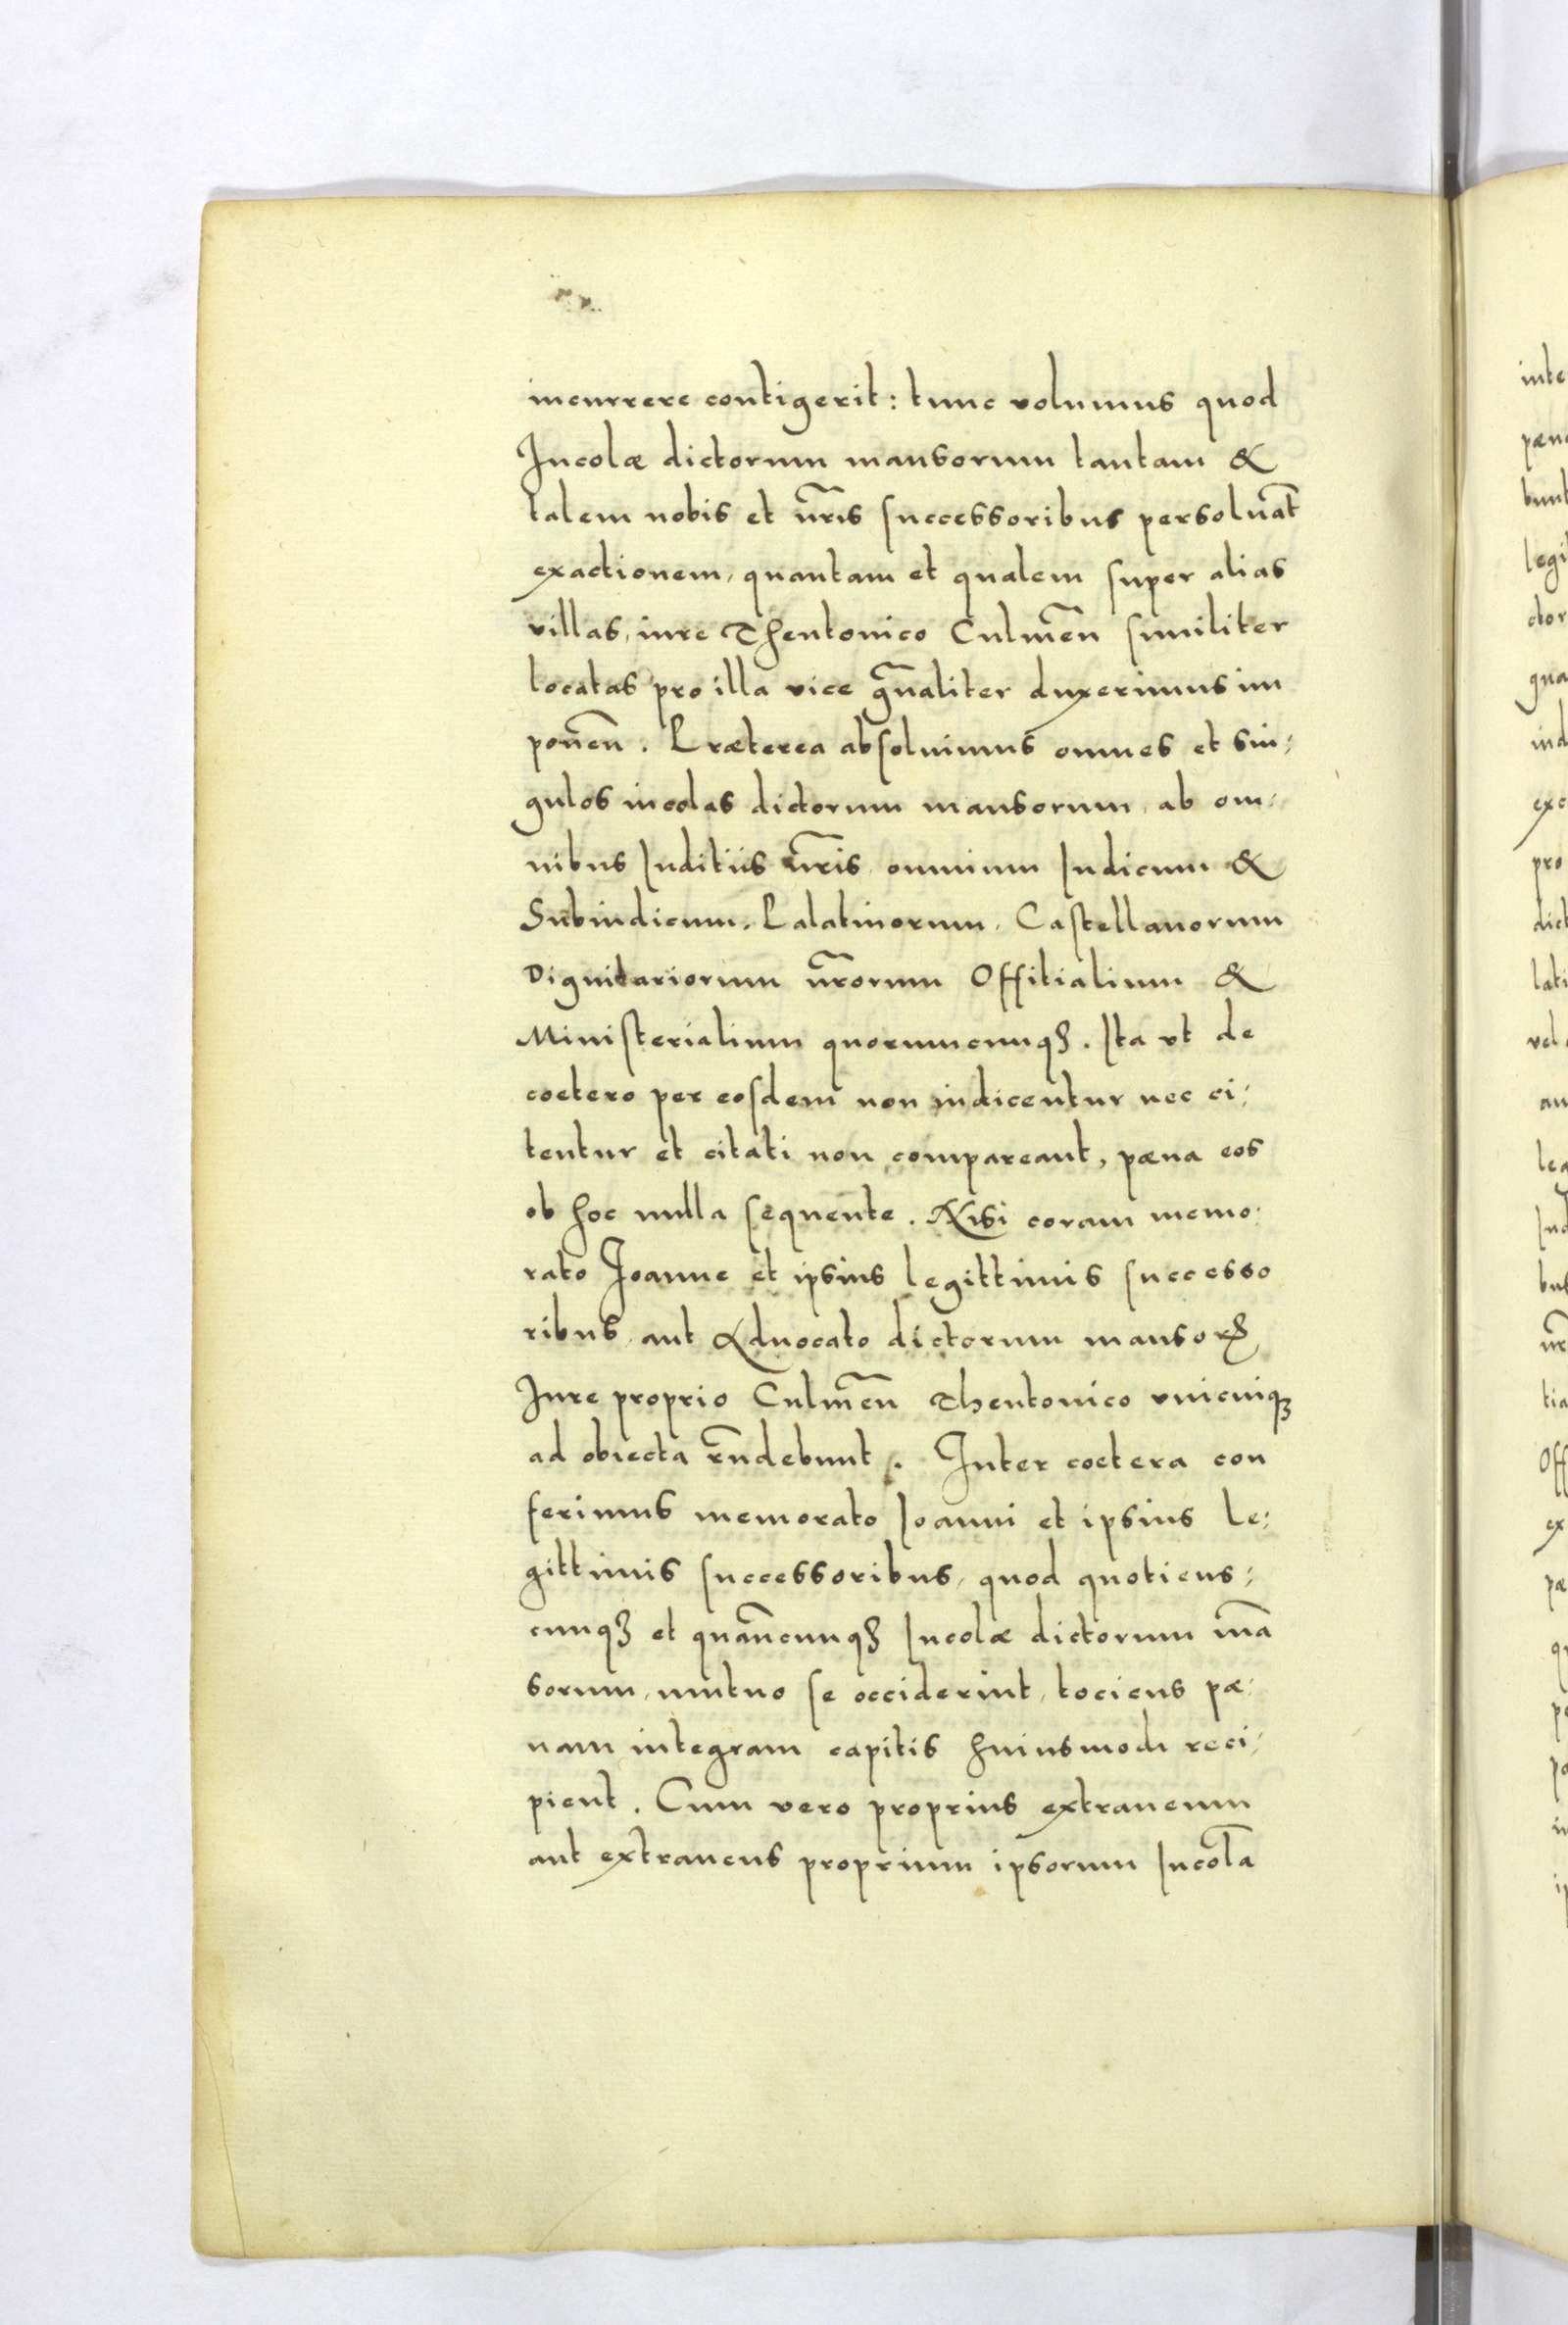 incurrere contigerit: tunc volumus quod
Incolæ dictorum mansorum tantam &
talem nobis et nr̃is successoribus persoluãt
exactionem, quantam et qualem super alias
villas, iure Theutonico Culmẽn similiter
locatas pro illa vice gñaliter duxerimus im
ponẽn. Præterea absoluimus omnes et sin:
gulos incolas dictorum mansorum, ab om:
nibus Iuditiis nr̃is, omnium Iudicum &
Subiudicum, Palatinorum, Castellanorum
Dignitariorum nr̃orum Offitialium &
Ministerialium quorumcunqȝ. Ita vt de
coetero per eosdem non iudicentur nec ci:
tentur et citati non compareant, pæna eos
ob hoc nulla sequente. Nisi coram memo:
rato Joanne et ipsius legittimis successo
ribus, aut Aduocato dictorum mansoꝝ
Jure proprio Culmẽn Theutonico vnicuiqȝ
ad obiecta rñdebunt. Inter coetera con
ferimus memorato Ioanni et ipsius le:
gittimis successoribus, quod quotiens:
cunqȝ et quañcunqȝ Incolæ dictorum mã
sorum, mutuo se occiderint, tociens pæ:
nam integram capitis huiusmodi reci:
pient. Cum vero proprius extraneum
aut extraneus proprium ipsorum Incol̃a